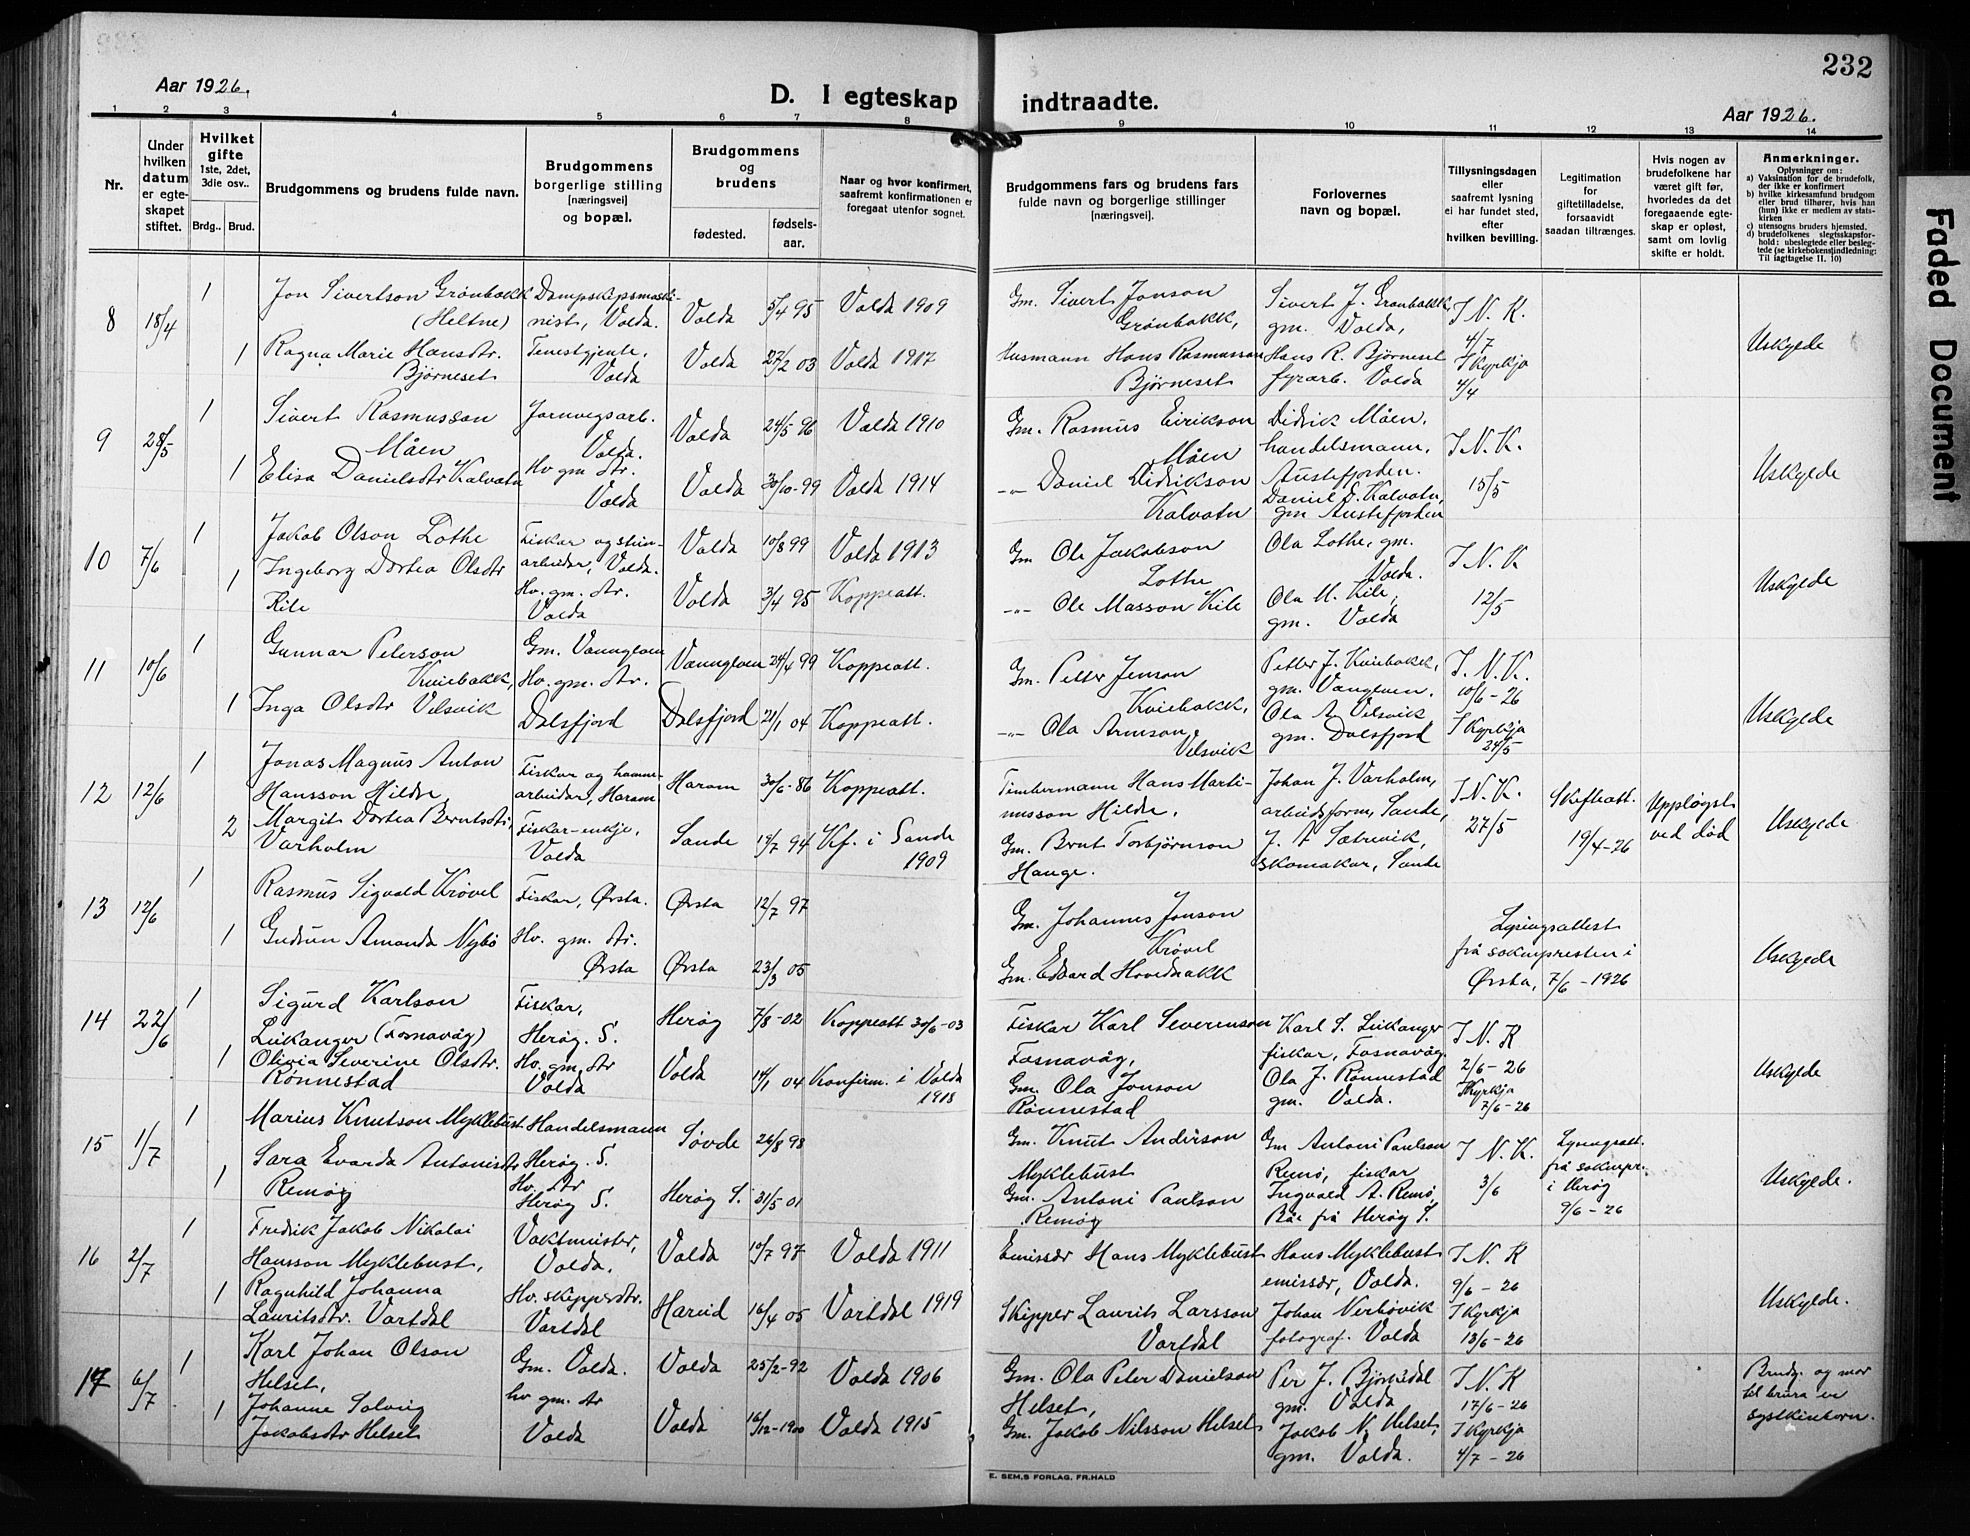 232
Aar 1926.
D. I egteskap indtraadte.
Aar 1926.
1 2 3 4 5 6 7 8 9 10 11 12 13 14
Nr.
Under hvilken datum er egteskapet stiftet.
Hvilket gifte 1ste, 2det, 3die osv..
Brdg.. Brud.
Brudgommens og brudens fulde navn.
Brudgommens borgerlige stilling [næringsvei] og bopæl.
Brudgommens og brudens
fødested. fødselsaar.
Naar og hvor konfirmert, saafremt konfirmationen er foregaat utenfor sognet.
Brudgommens fars og brudens fars fulde navn og borgerlige stillinger [næringsvei].
Forlovernes navn og bopæl.
Tillysningsdagen eller saafremt lysning ei har fundet sted, efter hvilken bevilling.
Legitimation for giftetilladelse, forsaavidt saadan tiltrænges.
Hvis nogen av brudefolkene har været gift før, hvorledes da det foregaaende egteskap er opløst, samt om lovlig skifte er holdt.
Anmerkninger.
Oplysninger om:
a) Vaksination for de brudefolk, der ikke er konfirmert
b) hvilke kirkesamfund brudgom eller brud tilhører, hvis han (hun) ikke er medlem av statskirken
c) utensogns bruders hjemsted.
d) brudefolkenes slegtsskapsforhold: ubeslegtede eller beslegtede (se kirkebokens indledning: Til iagttagelse II. 10)
8 18/4 1 Jon Sivertson Grønbakk (Heltne) Dampskipsmaskinist, Volda. Volda 5/4 95 Volda 1909 Gm. Sivert Jonson Grønbakk, Sivert J. Grønbakk, gm. Volda, I N. K. 4/7
1 Ragna Marie Hansdtr. Bjørneset Tenestgjente, Volda Volda 27/2 03 Volda 1917 Husmann Hans Rasmusson Bjørneset Hans R. Bjørneset fyrarb. Volda I Kyrkja 4/4 Uskylde
9 28/5 1 Sivert Rasmusson Måen Jarnvegsarb. Volda. Volda 24/5 96 Volda 1910 Gm. Rasmus Eirikson Måen Didrik Måen, handelsmann, Austefjorden. I N. K. 15/5
1 Elisa Danielsdtr Kalvatn Hv gm dtr. Volda Volda 30/10-99 Volda 1914 -"- Daniel Didrikson Kalvatn Daniel D. Kalvatn, gm Austefjorden Uskylde
10 7/6 1 Jakob Olson Lothe Fiskar og steinarbeidar, Volda. Volda 10/8 99 Volda 1913 Gm Ole Jakobson Lothe Ola Lothe, gm. Volda. I N. K 12/5
1 Ingeborg Dortea Olsdtr Kile Hv. gm. dtr. Volda Volda 3/4 95 Koppeatt. -"- Ole Masson Kile Ola M. Kile, gm. Volda Uskylde
11 10/6 1 Gunnar Peterson Kviebakk, Gm. Vanngloen Vanngloen 24/4 99 Koppeatt. Gm. Petter Jenson Kviebakk, Petter J. Kviebakk, gm. Vangloen. I. N. K. 10/6-26
1 Inga Olsdtr Velsvik Hv. gm. dtr. Dalsfjord Dalsfjord 21/1 04 Koppeatt. -"- Ola Arnson Velsvik Ola A. Velsvik, gm. Dalsfjord I Kyrkja 24/5 Uskylde
12 12/6 1 Jonas Magnus Anton Hansson Hildre Fiskar og hamnearbeidar, Haram Haram 30/6-86 Koppeatt. Timbermann Hans Martinusson Hildre. Johan J. Varholm, arbeidsform, Sande, I. N. K. 27/5 Skifteatt. 19/4-26 Uppløyst ved død
2 Margit Dortea Berntsdtr, Varholm Fiskar-enkje, Volda Sande 19/7 94 Kf. i Sande 1909 Gm. Brnt Torbjørnson Hauge. J. A Sætrevik, skomakar, Sande Uskylde
13 12/6 1 Rasmus Sigvald Krøvel Fiskar, Ørsta. Ørsta 12/7 97 Gm. Johannes Jonson Krøvel Lysingsattest frå soknepresten i Ørsta, 7/6-1926
1 Gudrun Amanda Nybø Hv. gm. dtr. Ørsta Ørsta 23/3 05 Gm. Edvard Hovednakk Uskylde
14 22/6 1 Sigurd Karlson Leikanger (Fosnavåg) Fiskar, Herøy. S. Herøy 7/8-02 Koppeatt 30/6-03 Fiskar Karl Severinson Fosnavåg, Karl S. Leikanger fiskar, Fosnavåg. I N. K 2/6-26
1 Olivia Severine Olsdtr. Rønnestad Hv. gm. dtr Volda Volda 14/1 04 Konfirm. i Volda 1918 Gm. Ola Jonson Rønnestad Ola J. Rønnestad gm. Volda. I Kyrkja 7/6-26 Uskylde
15 1/7 1 Marius Knutson Myklebust Handelsmann Herøy. S. Søvde 26/8 98 Gm. Knut Anderson Myklebust Gm Antoni Paulson Remø, fiskar I N. K. 3/6 Lysingsatt. frå soknepr. i Herøy 9/6-26
1 Sara Evarda Antonisdtr Remøy Hv. dtr Herøy S. Herøy S. 31/5 01 Gm. Antoni Paulson Remøy Ingvald A. Remø, Båe frå Herøy S. Uskylde.
16 2/7 1 Fredrik Jakob Nikolai Hansson Myklebust, Vaktmeister, Volda. Volda 10/7 97 Volda 1911 Emissær Hans Myklebust Hans Myklebust emissær, Volda. I N. K 9/6-26
1 Ragnhild Johanna Lauritsdtr. Vartdal Hv. skipperdtr. Vartdal Hareid 16/4 05 Vartdal 1919 Skipper Laurits Larsson Vartdal Johan Nerbøvik fotograf. Volda I Kyrkja 13/6-26 Uskylde.
17 6/7 1 Karl Johan Olson Helset, Gm. Volda. Volda 25/2-92 Volda 1906 Gm. Ola Peter Danielson Helset, Per J. Bjørkedal gm. Volda I. N. K 17/6-26
1 Johanne Solveig Jakobsdtr Helset hv gm. dtr Volda Volda 16/12-1900 Volda 1915 Gm. Jakob Nilsson Helset Jakob N. Helset, gm. Volda. I Kyrkja 4/7-26 Brudg. og mor til brura er syskinborn.
E. SEM,S FORLAG, FR.HALD
Faded Document